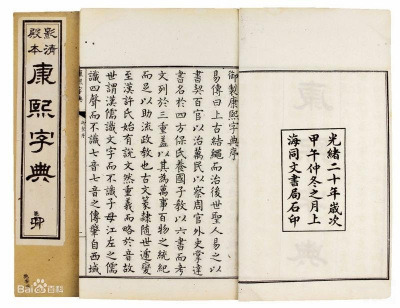 光緒二十年歲次
甲午仲冬之月上
海同文書局石印
御製康熙字典序
易傳曰上古結繩而治後世聖人易之以
書契百官以治萬民以察周官外史掌達
書名於四方保氏養國子教以六書而考
文列於三重蓋以其為萬事百物之統紀
而足以助流政教也古文篆隸隨世遞變
至漢許氏始有說文然重義而略於音故
世謂漢儒識文字而不識子母江左之儒
識四聲而不識七音七音之傳肇自西域
康熙字典
影清
殿本
康熙字典
Baidu百科